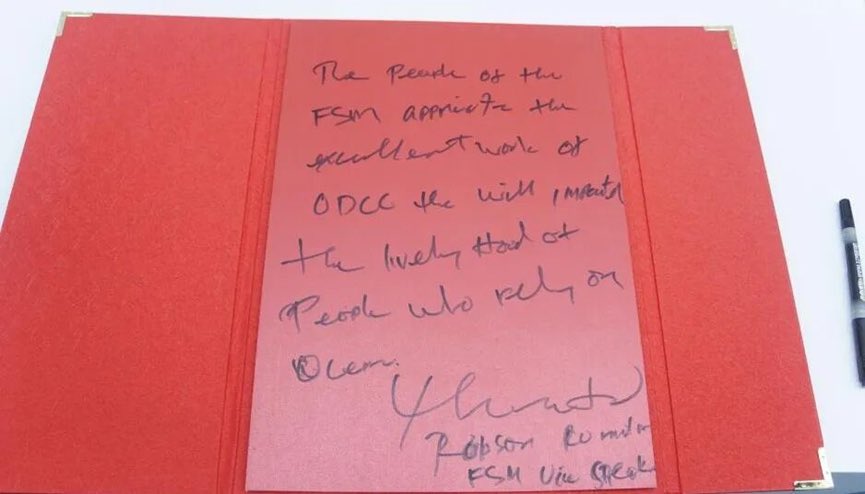 The People of the
FSM appriciate the
excellent work of
ODCC the will impact
the lively Hood of
People who rely on
Ocean.
Robson
FSM Vice Speak